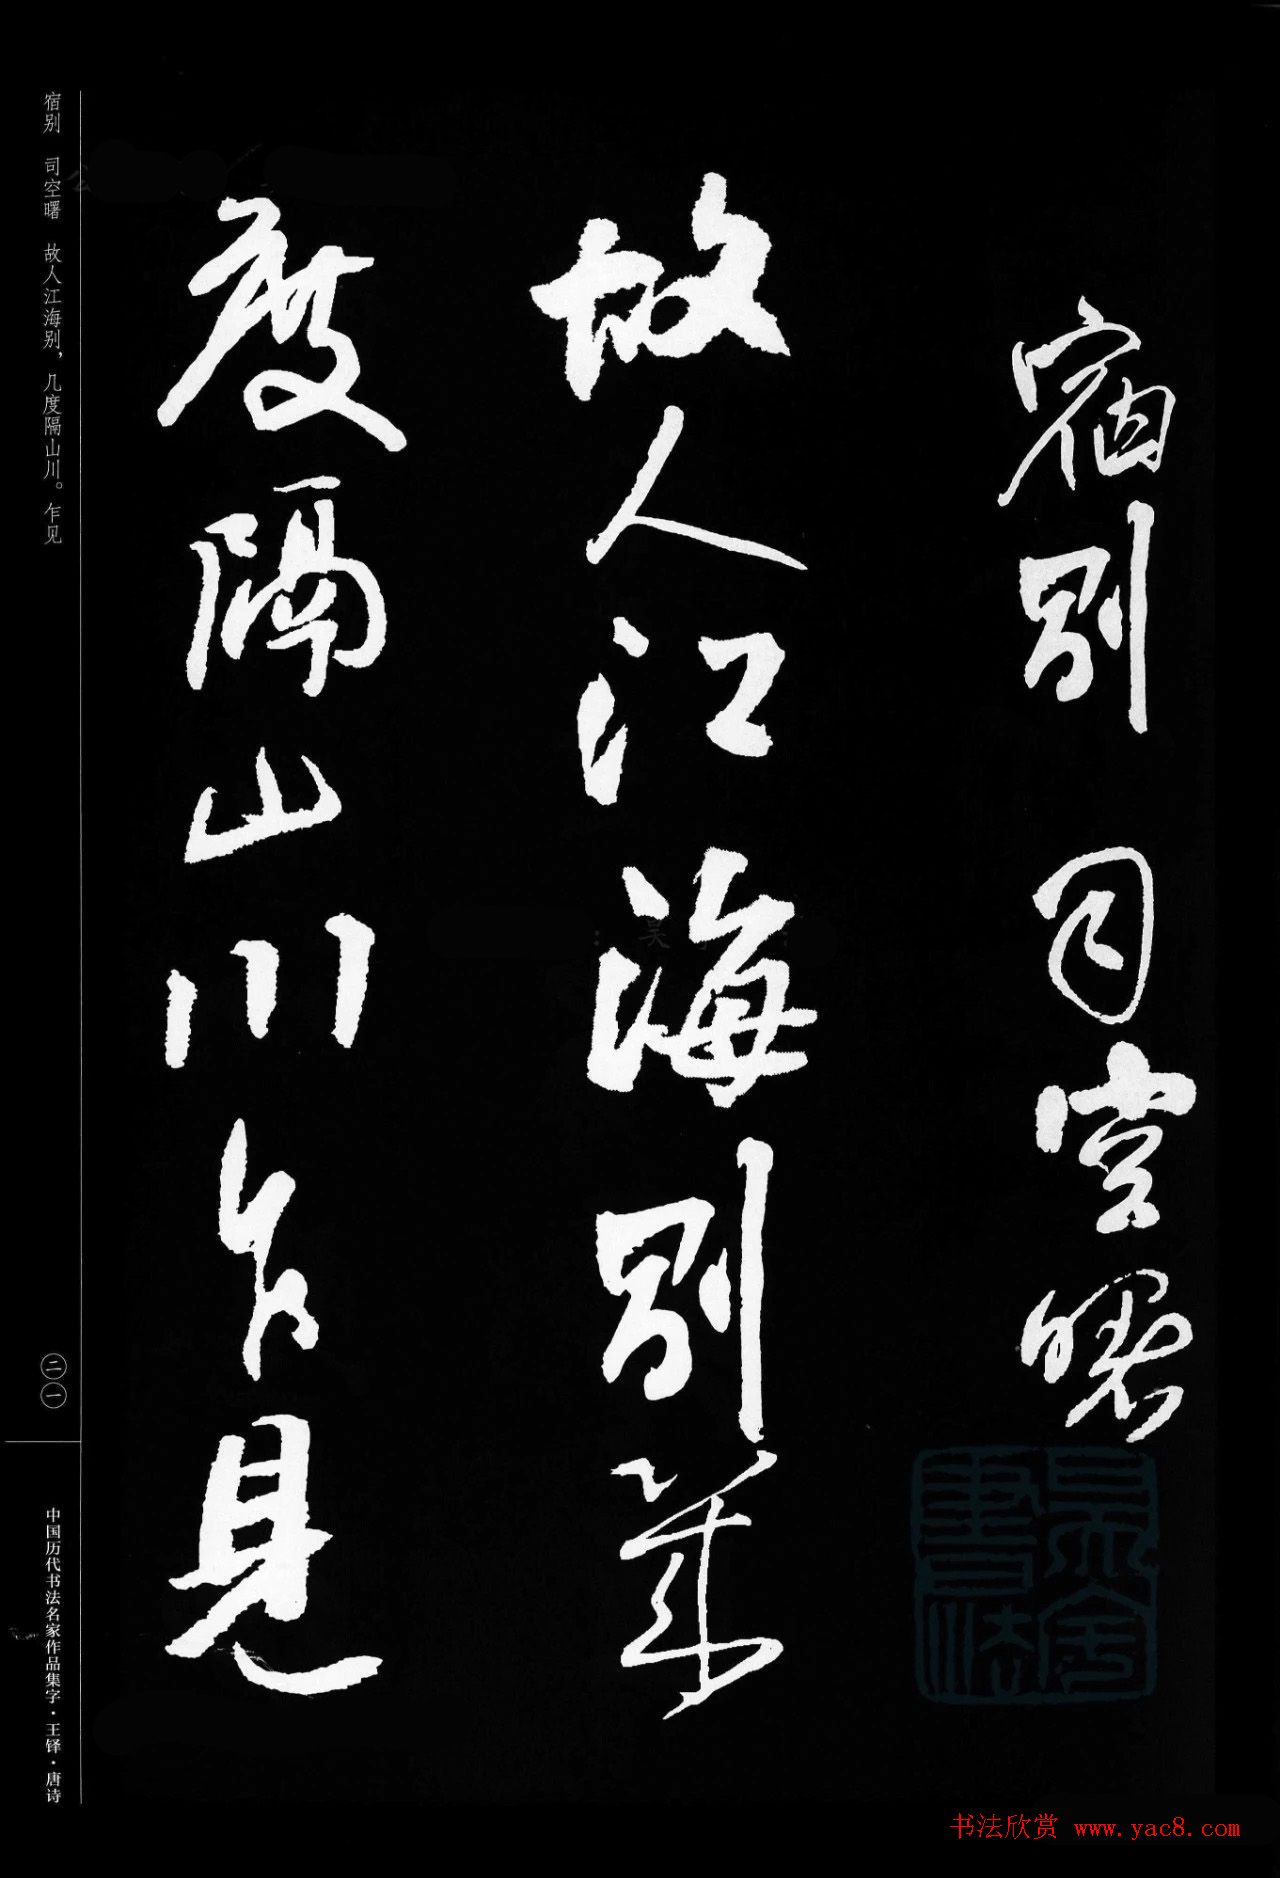 宿别 司空曙
故人江海别几
度隔山川乍見
宿别 司空曙 故人江海别，几度隔山川。乍见
二一
中国历代书法名家作品集字·王铎·唐诗
书法欣赏 www.yac8.com